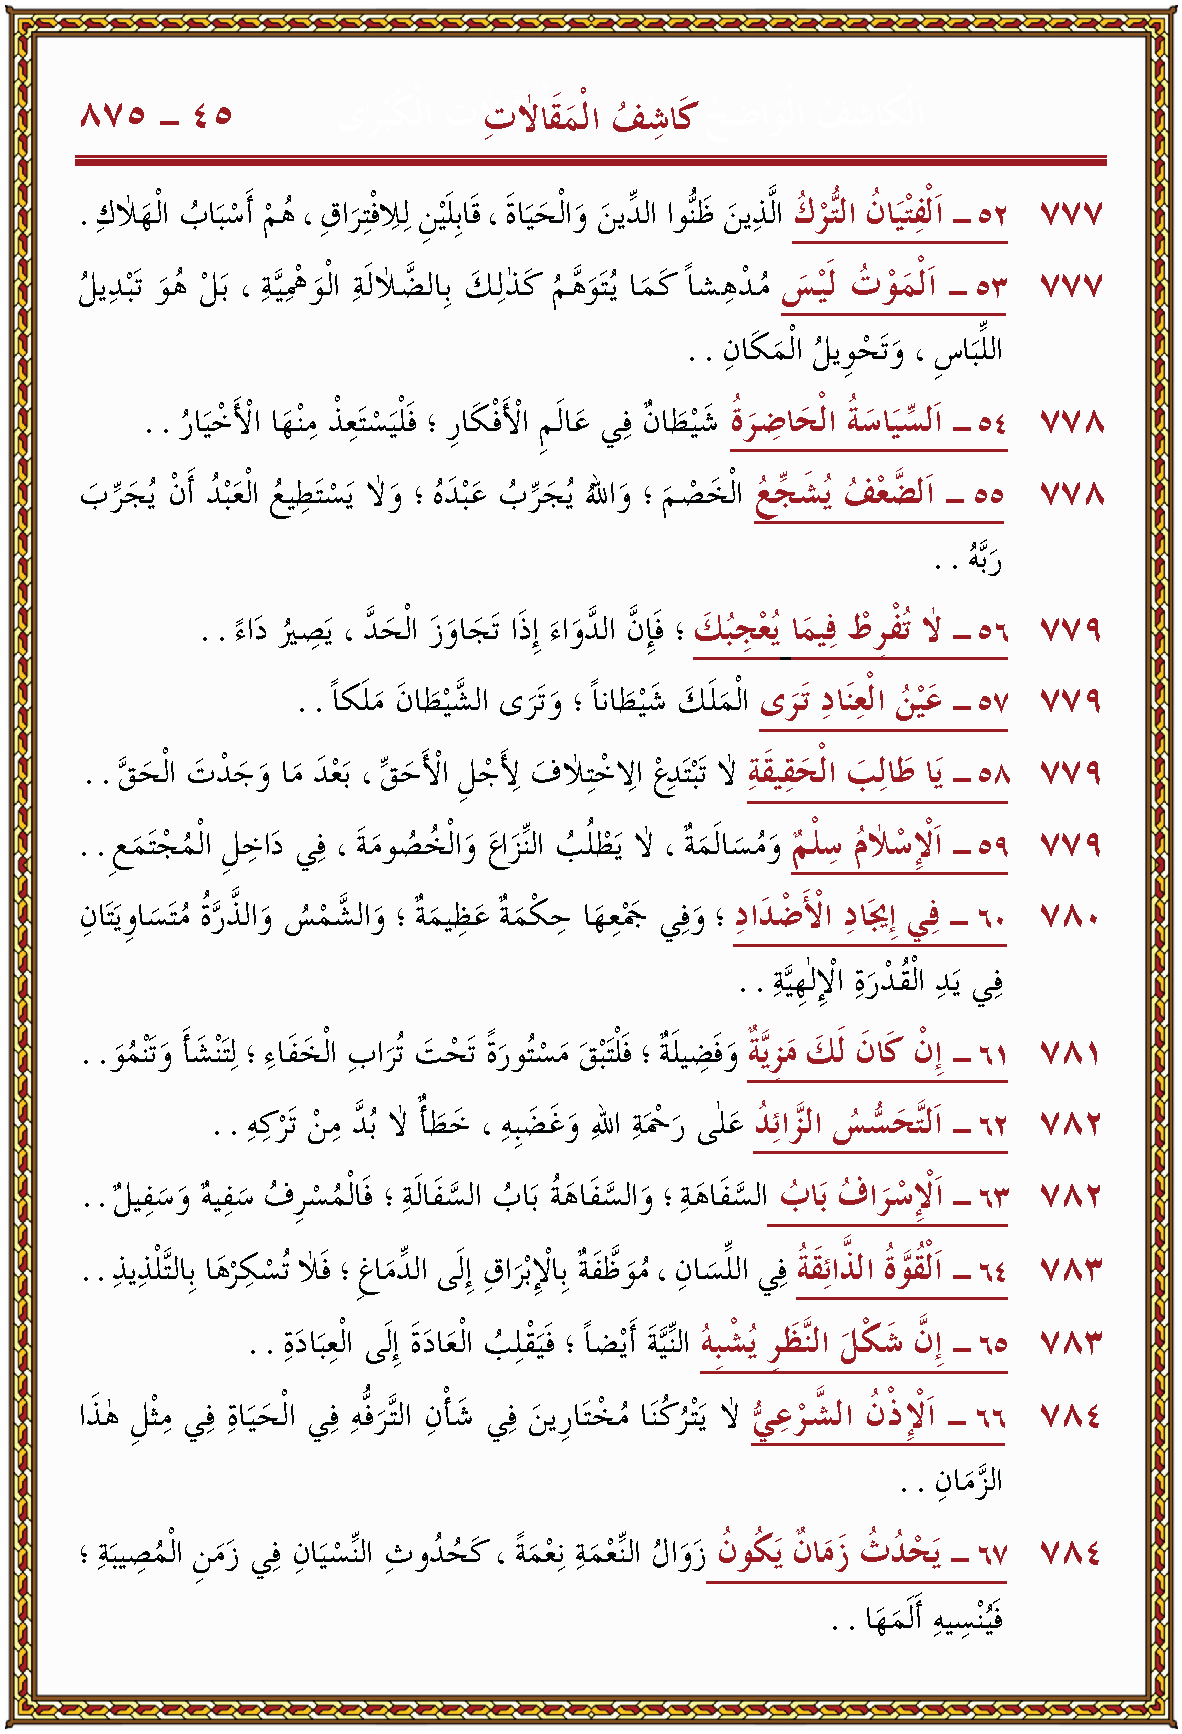 كَاشِفُ الْمَقَالَاتِ ٤٥ ــ ٨٧٥
٧٧٧ ٥٢ ــ اَلْفِتْيَانُ التُّرْكُ الَّذِينَ ظَنُّوا الدِّينَ وَالْحَيَاةَ ، قَابِلَيْنِ لِلِافْتِرَاقِ ، هُمْ أَسْبَابُ الْهَلَاكِ .
٧٧٧ ٥٣ ــ اَلْمَوْتُ لَيْسَ مُدْهِشاً كَمَا يُتَوَهَّمُ كَذٰلِكَ بِالضَّلَالَةِ الْوَهْمِيَّةِ ، بَلْ هُوَ تَبْدِيلُ
اللِّبَاسِ ، وَتَحْوِيلُ الْمَكَانِ . .
٧٧٨ ٥٤ ــ اَلسِّيَاسَةُ الْحَاضِرَةُ شَيْطَانٌ فِي عَالَمِ الْأَفْكَارِ ؛ فَلْيَسْتَعِذْ مِنْهَا الْأَخْيَارُ . .
٧٧٨ ٥٥ ــ اَلضَّعْفُ يُشَجِّعُ الْخَصْمَ ؛ وَاللهُ يُجَرِّبُ عَبْدَهُ ؛ وَلَا يَسْتَطِيعُ الْعَبْدُ أَنْ يُجَرِّبَ
رَبَّهُ . .
٧٧٩ ٥٦ ــ لَا تُفْرِطْ فِيمَا يُعْجِبُكَ ؛ فَإِنَّ الدَّوَاءَ إِذَا تَجَاوَزَ الْحَدَّ ، يَصِيرُ دَاءً . .
٧٧٩ ٥٧ ــ عَيْنُ الْعِنَادِ تَرَى الْمَلَكَ شَيْطَاناً ؛ وَتَرَى الشَّيْطَانَ مَلَكاً . .
٧٧٩ ٥٨ ــ يَا طَالِبَ الْحَقِيقَةِ لَا تَبْتَدِعْ الِاخْتِلَافَ لِأَجْلِ الْأَحَقِّ ، بَعْدَ مَا وَجَدْتَ الْحَقَّ . .
٧٧٩ ٥٩ ــ اَلْإِسْلَامُ سِلْمٌ وَمُسَالَمَةٌ ، لَا يَطْلُبُ النِّزَاعَ وَالْخُصُومَةَ ، فِي دَاخِلِ الْمُجْتَمَعِ . .
٧٨٠ ٦٠ ــ فِي إِيجَادِ الْأَضْدَادِ ؛ وَفِي جَمْعِهَا حِكْمَةٌ عَظِيمَةٌ ؛ وَالشَّمْسُ وَالذَّرَّةُ مُتَسَاوِيَتَانِ
فِي يَدِ الْقُدْرَةِ الْإِلٰهِيَّةِ . .
٧٨١ ٦١ ــ إِنْ كَانَ لَكَ مَزِيَّةٌ وَفَضِيلَةٌ ؛ فَلْتَبْقَ مَسْتُورَةً تَحْتَ تُرَابِ الْخَفَاءِ ؛ لِتَنْشَأَ وَتَنْمُوَ . .
٧٨٢ ٦٢ ــ اَلتَّحَسُّسُ الزَّائِدُ عَلَى رَحْمَةِ اللهِ وَغَضَبِهِ ، خَطَأٌ لَا بُدَّ مِنْ تَرْكِهِ . .
٧٨٢ ٦٣ ــ اَلْإِسْرَافُ بَابُ السَّفَاهَةِ ؛ وَالسَّفَاهَةُ بَابُ السَّفَالَةِ ؛ فَالْمُسْرِفُ سَفِيهٌ وَسَفِيلٌ . .
٧٨٣ ٦٤ ــ اَلْقُوَّةُ الذَّائِقَةُ فِي اللِّسَانِ ، مُوَظَّفَةٌ بِالْإِبْرَاقِ إِلَى الدِّمَاغِ ؛ فَلَا تُسْكِرْهَا بِالتَّلْذِيذِ . .
٧٨٣ ٦٥ ــ إِنَّ شَكْلَ النَّظَرِ يُشْبِهُ النِّيَّةَ أَيْضاً ؛ فَيَقْلِبُ الْعَادَةَ إِلَى الْعِبَادَةِ . .
٧٨٤ ٦٦ ــ اَلْإِذْنُ الشَّرْعِيُّ لَا يَتْرُكُنَا مُخْتَارِينَ فِي شَأْنِ التَّرَفُّهِ فِي الْحَيَاةِ فِي مِثْلِ هٰذَا
الزَّمَانِ . .
٧٨٤ ٦٧ ــ يَحْدُثُ زَمَانٌ يَكُونُ زَوَالُ النِّعْمَةِ نِعْمَةً ، كَحُدُوثِ النِّسْيَانِ فِي زَمَنِ الْمُصِيبَةِ ؛
فَيُنْسِيهِ أَلَمَهَا . .